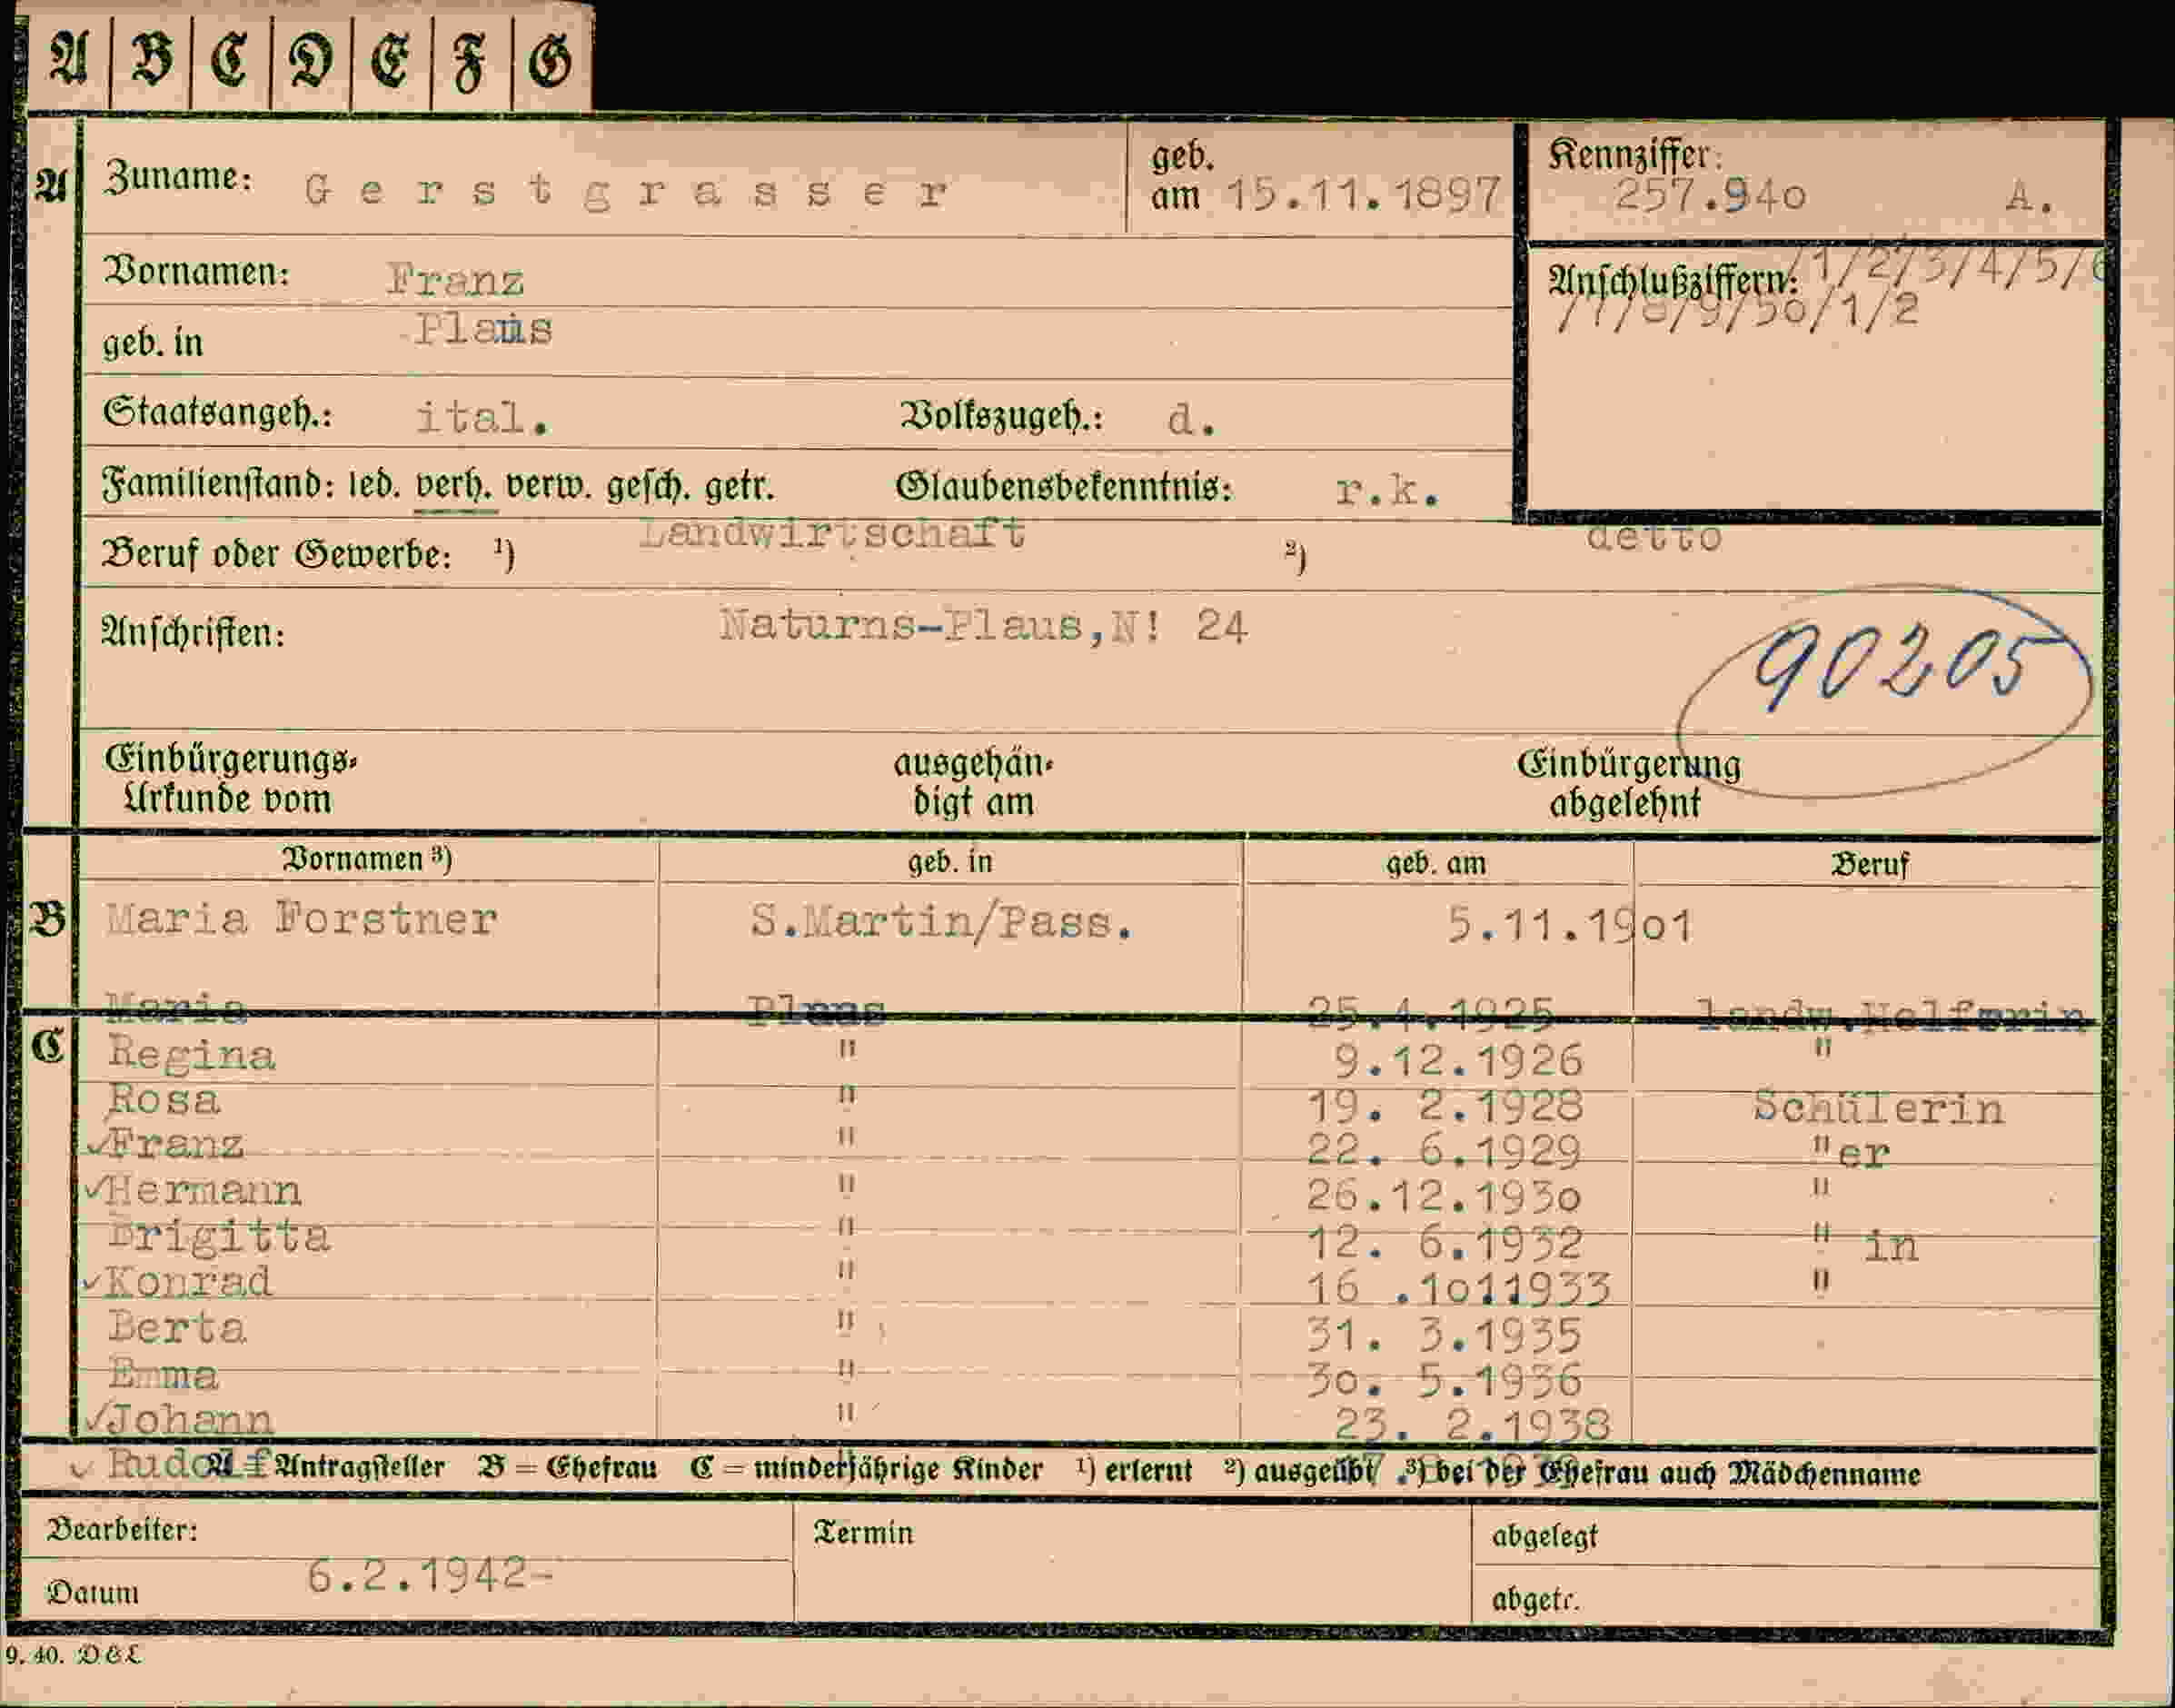 A B C D E F G
A Zuname: Gerstgrasser geb. am 15.11.1897 Kennziffer: 257.94o A.
Vornamen: Franz Anschlußziffern: /1/2/3/4/5/6
/7/8/9/5o/1/2
geb. in Plaus
Staatsangeh.: ital. Volkszugeh.: d.
Familienstand: led. verh. verw. gesch. getr. Glaubensbekenntnis: r.k.
Beruf oder Gewerbe: ¹) Landwirtschaft ²) detto
Anschriften: Naturns-Plaus,N! 24
90205
Einbürgerungs-Urkunde vom ausgehändigt am Einbürgerung abgelehnt
Vornamen ³) geb. in geb. am Beruf
B Maria Forstner S.Martin/Pass. 5.11.19o1
Maria Plaus 25.4.1925 landw.Helferin
C Regina " 9.12.1926 "
Rosa " 19. 2.1928 Schülerin
✓Franz " 22. 6.1929 "er
✓Hermann " 26.12.193o "
Brigitta " 12. 6.1932 " in
✓Konrad " 16 .1o11933 "
Berta " 31. 3.1935
Emma " 3o. 5.1936
✓Johann " 23. 2.1938
✓ Rudolf
A = Antragsteller B = Ehefrau C = minderjährige Kinder ¹) erlernt ²) ausgeübt ³) bei der Ehefrau auch Mädchenname
Bearbeiter: Termin abgelegt
Datum 6.2.1942- abgetr.
9. 40. D&L